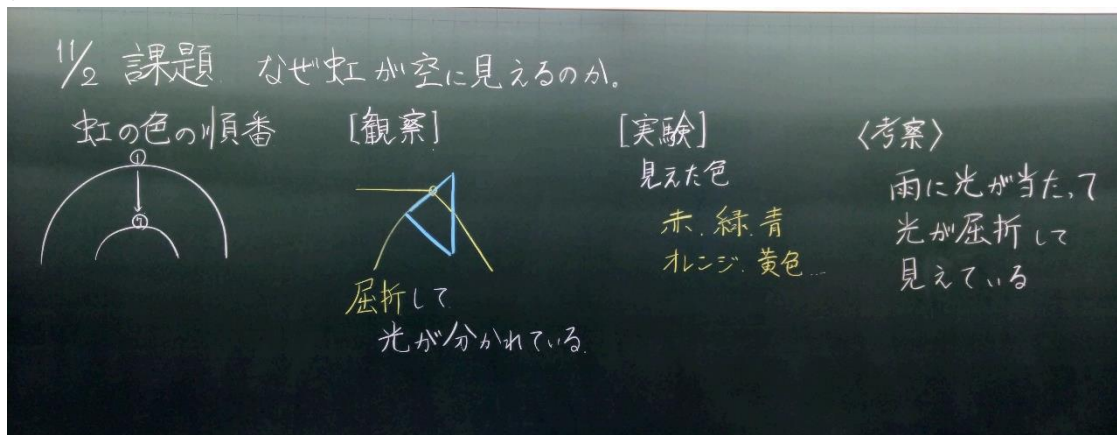 11/2 課題 なぜ虹が空に見えるのか。
虹の色の順番
①
⑦
[観察]
屈折して
光が分かれている.
[実験]
見えた色
赤、緑、青
オレンジ、黄色…
〈考察〉
雨に光が当たって
光が屈折して
見えている